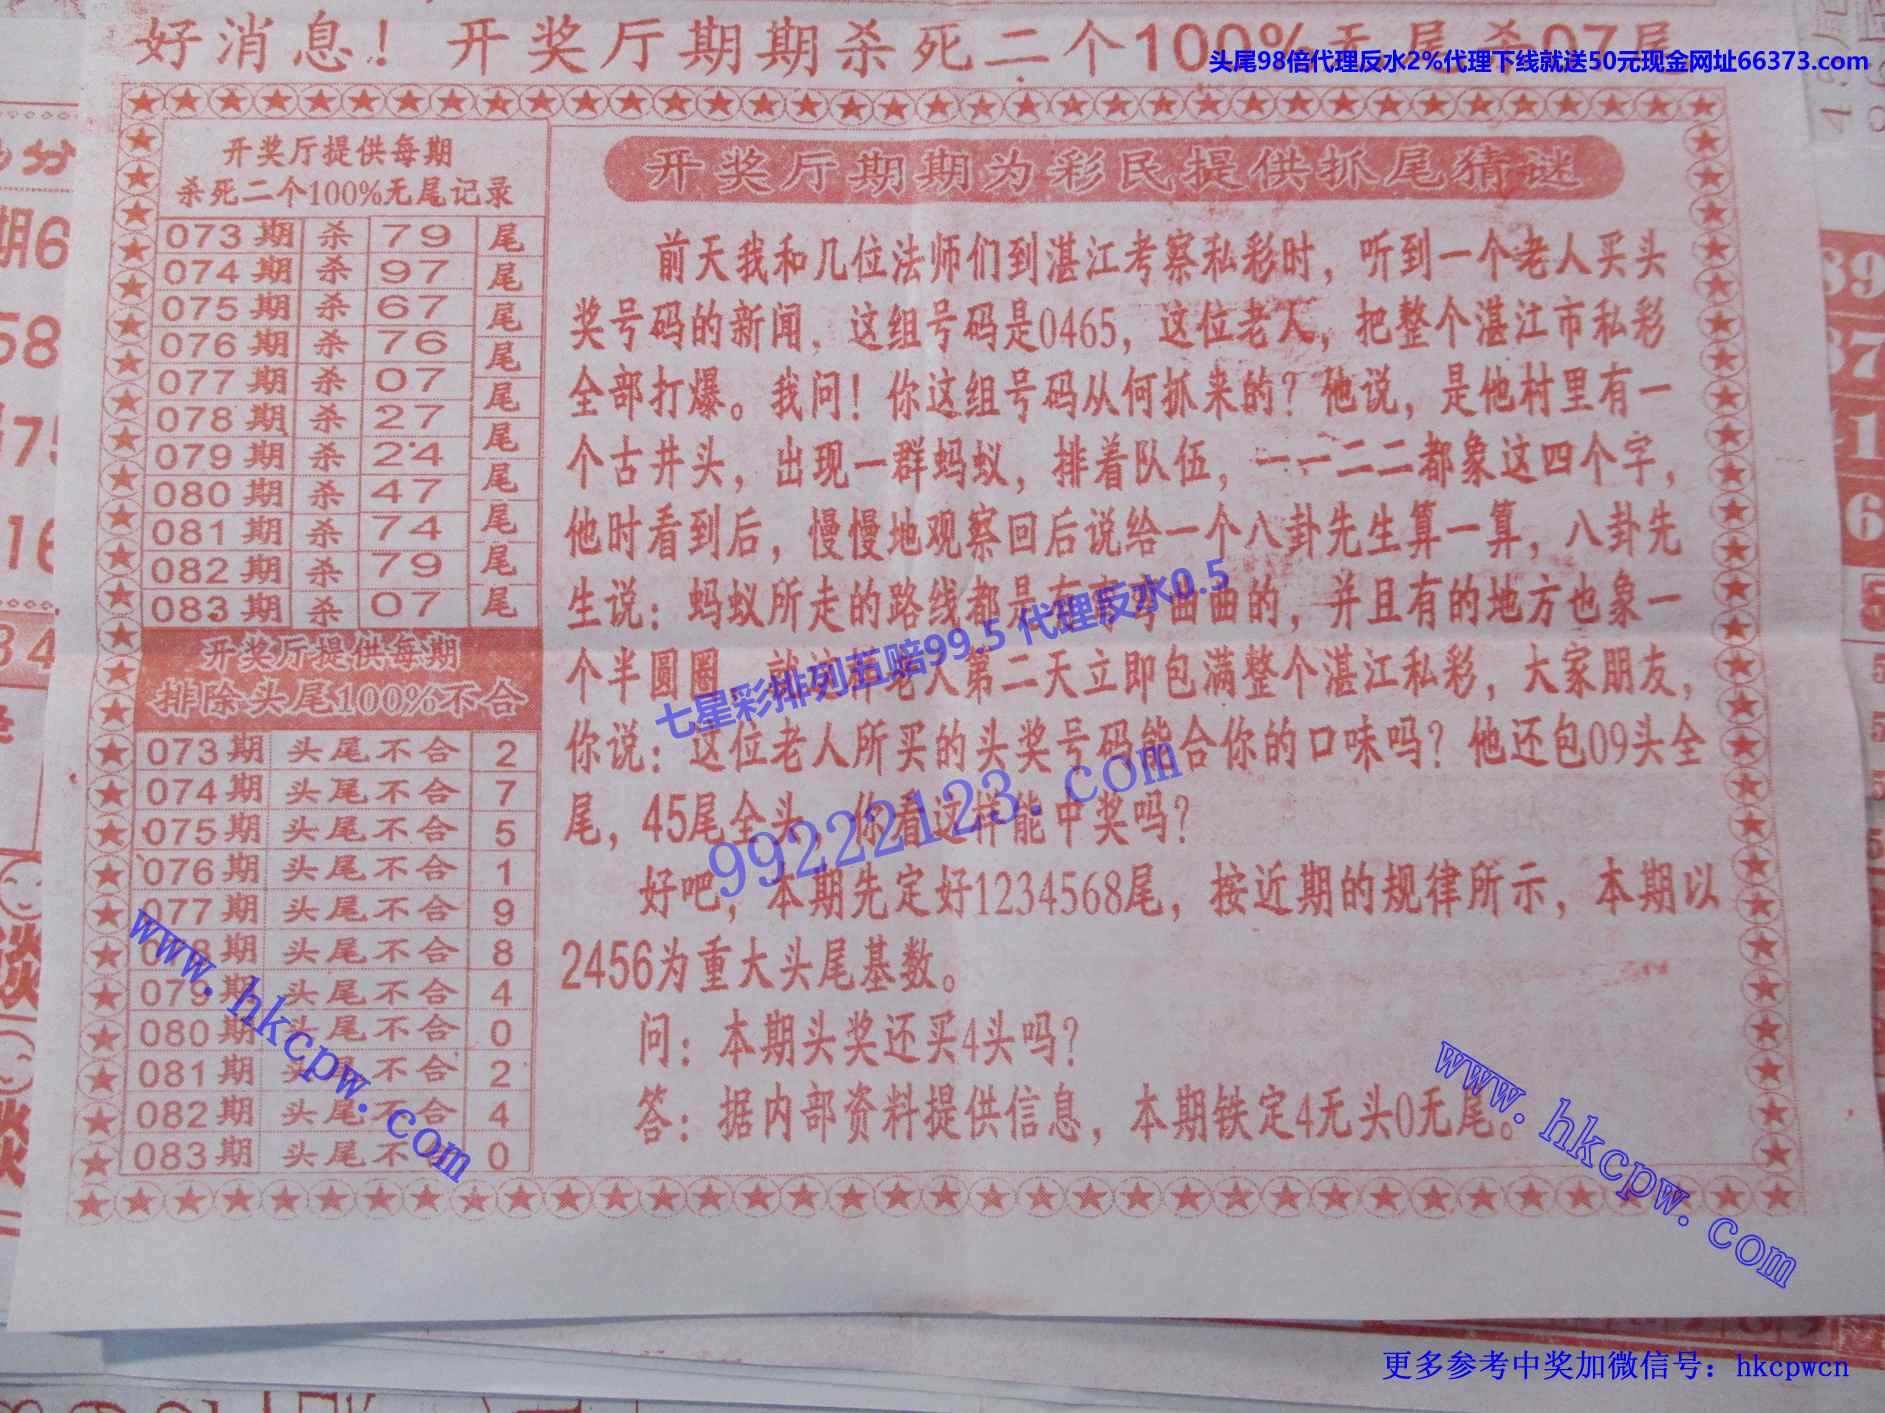 好消息！开奖厅期期杀死二个100%无尾杀07尾
头尾98倍代理反水2%代理下线就送50元现金网址66373.com
开奖厅提供每期
杀死二个100%无尾记录
073期 杀 79 尾
074期 杀 97 尾
075期 杀 67 尾
076期 杀 76 尾
077期 杀 07 尾
078期 杀 27 尾
079期 杀 24 尾
080期 杀 47 尾
081期 杀 74 尾
082期 杀 79 尾
083期 杀 07 尾
开奖厅提供每期
排除头尾100%不合
073期 头尾不合 2
074期 头尾不合 7
075期 头尾不合 5
076期 头尾不合 1
077期 头尾不合 9
078期 头尾不合 8
079期 头尾不合 4
080期 头尾不合 0
081期 头尾不合 2
082期 头尾不合 4
083期 头尾不合 0
开奖厅期期为彩民提供抓尾猜谜
前天我和几位法师们到湛江考察私彩时，听到一个老人买头
奖号码的新闻，这组号码是0465，这位老人，把整个湛江市私彩
全部打爆。我问！你这组号码从何抓来的？他说，是他村里有一
个古井头，出现一群蚂蚁，排着队伍，一一二二都象这四个字，
他时看到后，慢慢地观察回后说给一个八卦先生算一算，八卦先
生说：蚂蚁所走的路线都是有弯曲曲的，并且有的地方也象一
个半圆圈，就这样老人第二天立即包满整个湛江私彩，大家朋友，
你说：这位老人所买的头奖号码能合你的口味吗？他还包09头全
尾，45尾全头，你看这样能中奖吗？
好吧，本期先定好1234568尾，按近期的规律所示，本期以
2456为重大头尾基数。
问：本期头奖还买4头吗？
答：据内部资料提供信息，本期铁定4无头0无尾。
七星彩排列五赔99.5 代理反水0.5
99222123.com
www.hkcpw.com
www.hkcpw.com
更多参考中奖加微信号：hkcpwcn